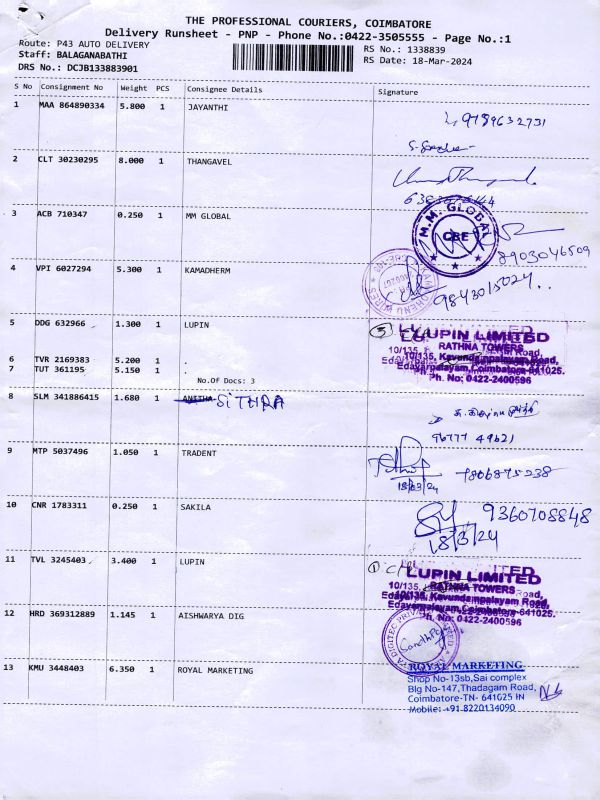 THE PROFESSIONAL COURIERS, COIMBATORE
Delivery Runsheet - PNP - Phone No.:0422-3505555 - Page No.:1
Route: P43 AUTO DELIVERY
RS No.: 1338839
Staff: BALAGANABATHI
RS Date: 18-Mar-2024
DRS No.: DCJB133883901
S No Consignment No Weight PCS Consignee Details Signature
1 MAA 864890334 5.800 1 JAYANTHI
9789632731
2 CLT 30230295 8.000 1 THANGAVEL
3 ACB 710347 0.250 1 MM GLOBAL
M.M. GLOBAL
CBE
8903046509
4 VPI 6027294 5.300 1 KAMADHERM
9843015024..
5 DDG 632966 1.300 1 LUPIN
LUPIN LIMITED
RATHNA TOWERS
10/135, Kavundampalayam Road,
Edayarpalayam,Coimbatore-641025.
Ph. No: 0422-2400596
6 TVR 2169383 5.200 1 .
7 TUT 361195 5.150 1 .
No.Of Docs: 3
8 SLM 341886415 1.680 1 ANITHA SITHRA
96777 49621
9 MTP 5037496 1.050 1 TRADENT
18/03/24
10 CNR 1783311 0.250 1 SAKILA
9360708848
18/3/24
11 TVL 3245403 3.400 1 LUPIN
LUPIN LIMITED
RATHNA TOWERS
10/135, Kavundampalayam Road,
Edayarpalayam,Coimbatore-641025.
Ph. No: 0422-2400596
12 HRD 369312889 1.145 1 AISHWARYA DIG
13 KMU 3448403 6.350 1 ROYAL MARKETING
ROYAL MARKETING
Shop No-13sb,Sai complex
Blg No-147,Thadagam Road,
Coimbatore-TN- 641025 IN
Mobile: +91-8220134090